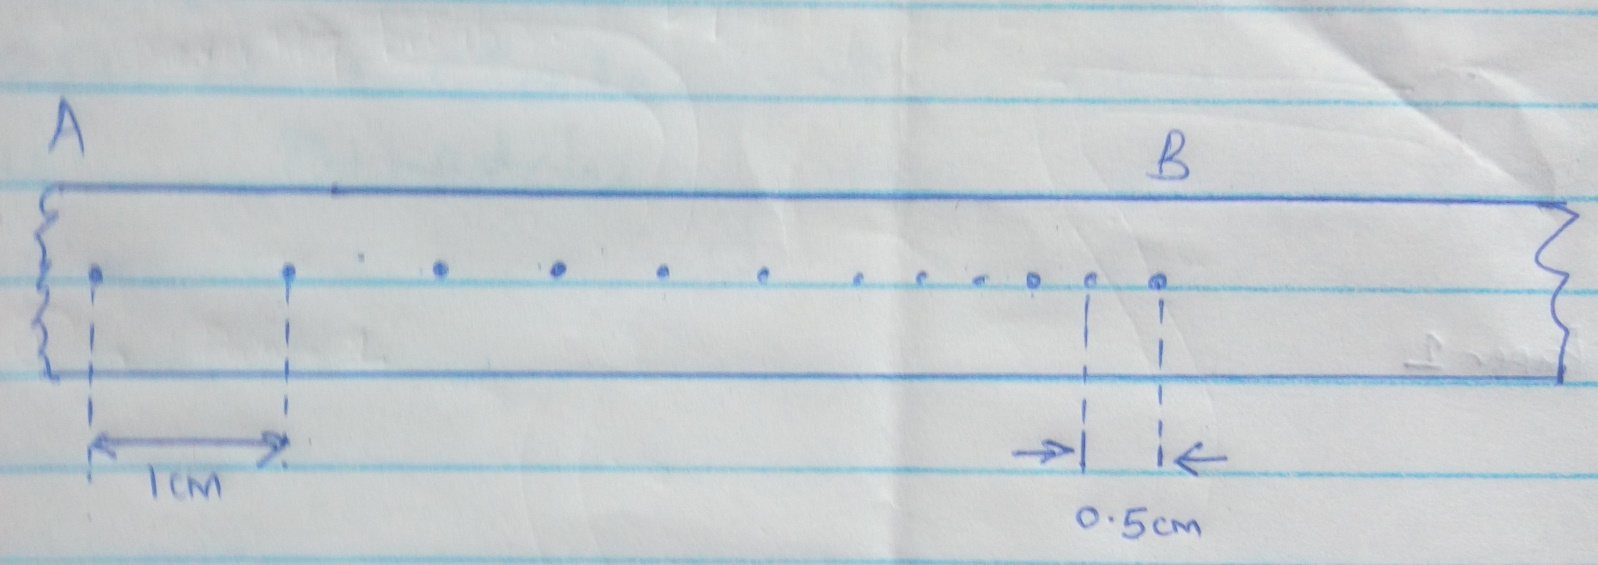 A
B
1cm
0.5cm